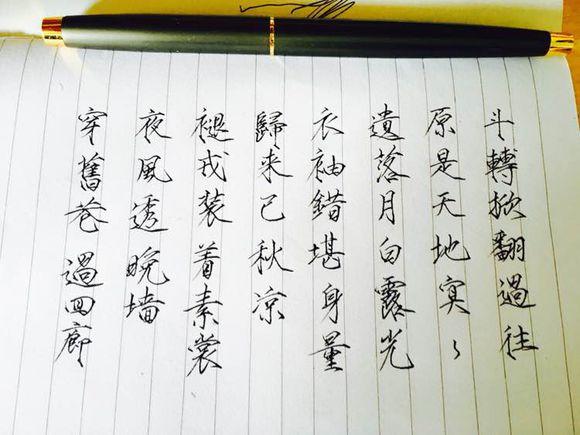 斗轉掀翻過往
原是天地寞〻
遺落月白露光
衣袖錯堪身量
歸来已秋凉
褪戎装着素裳
夜風透晚墙
穿舊巷過回廊